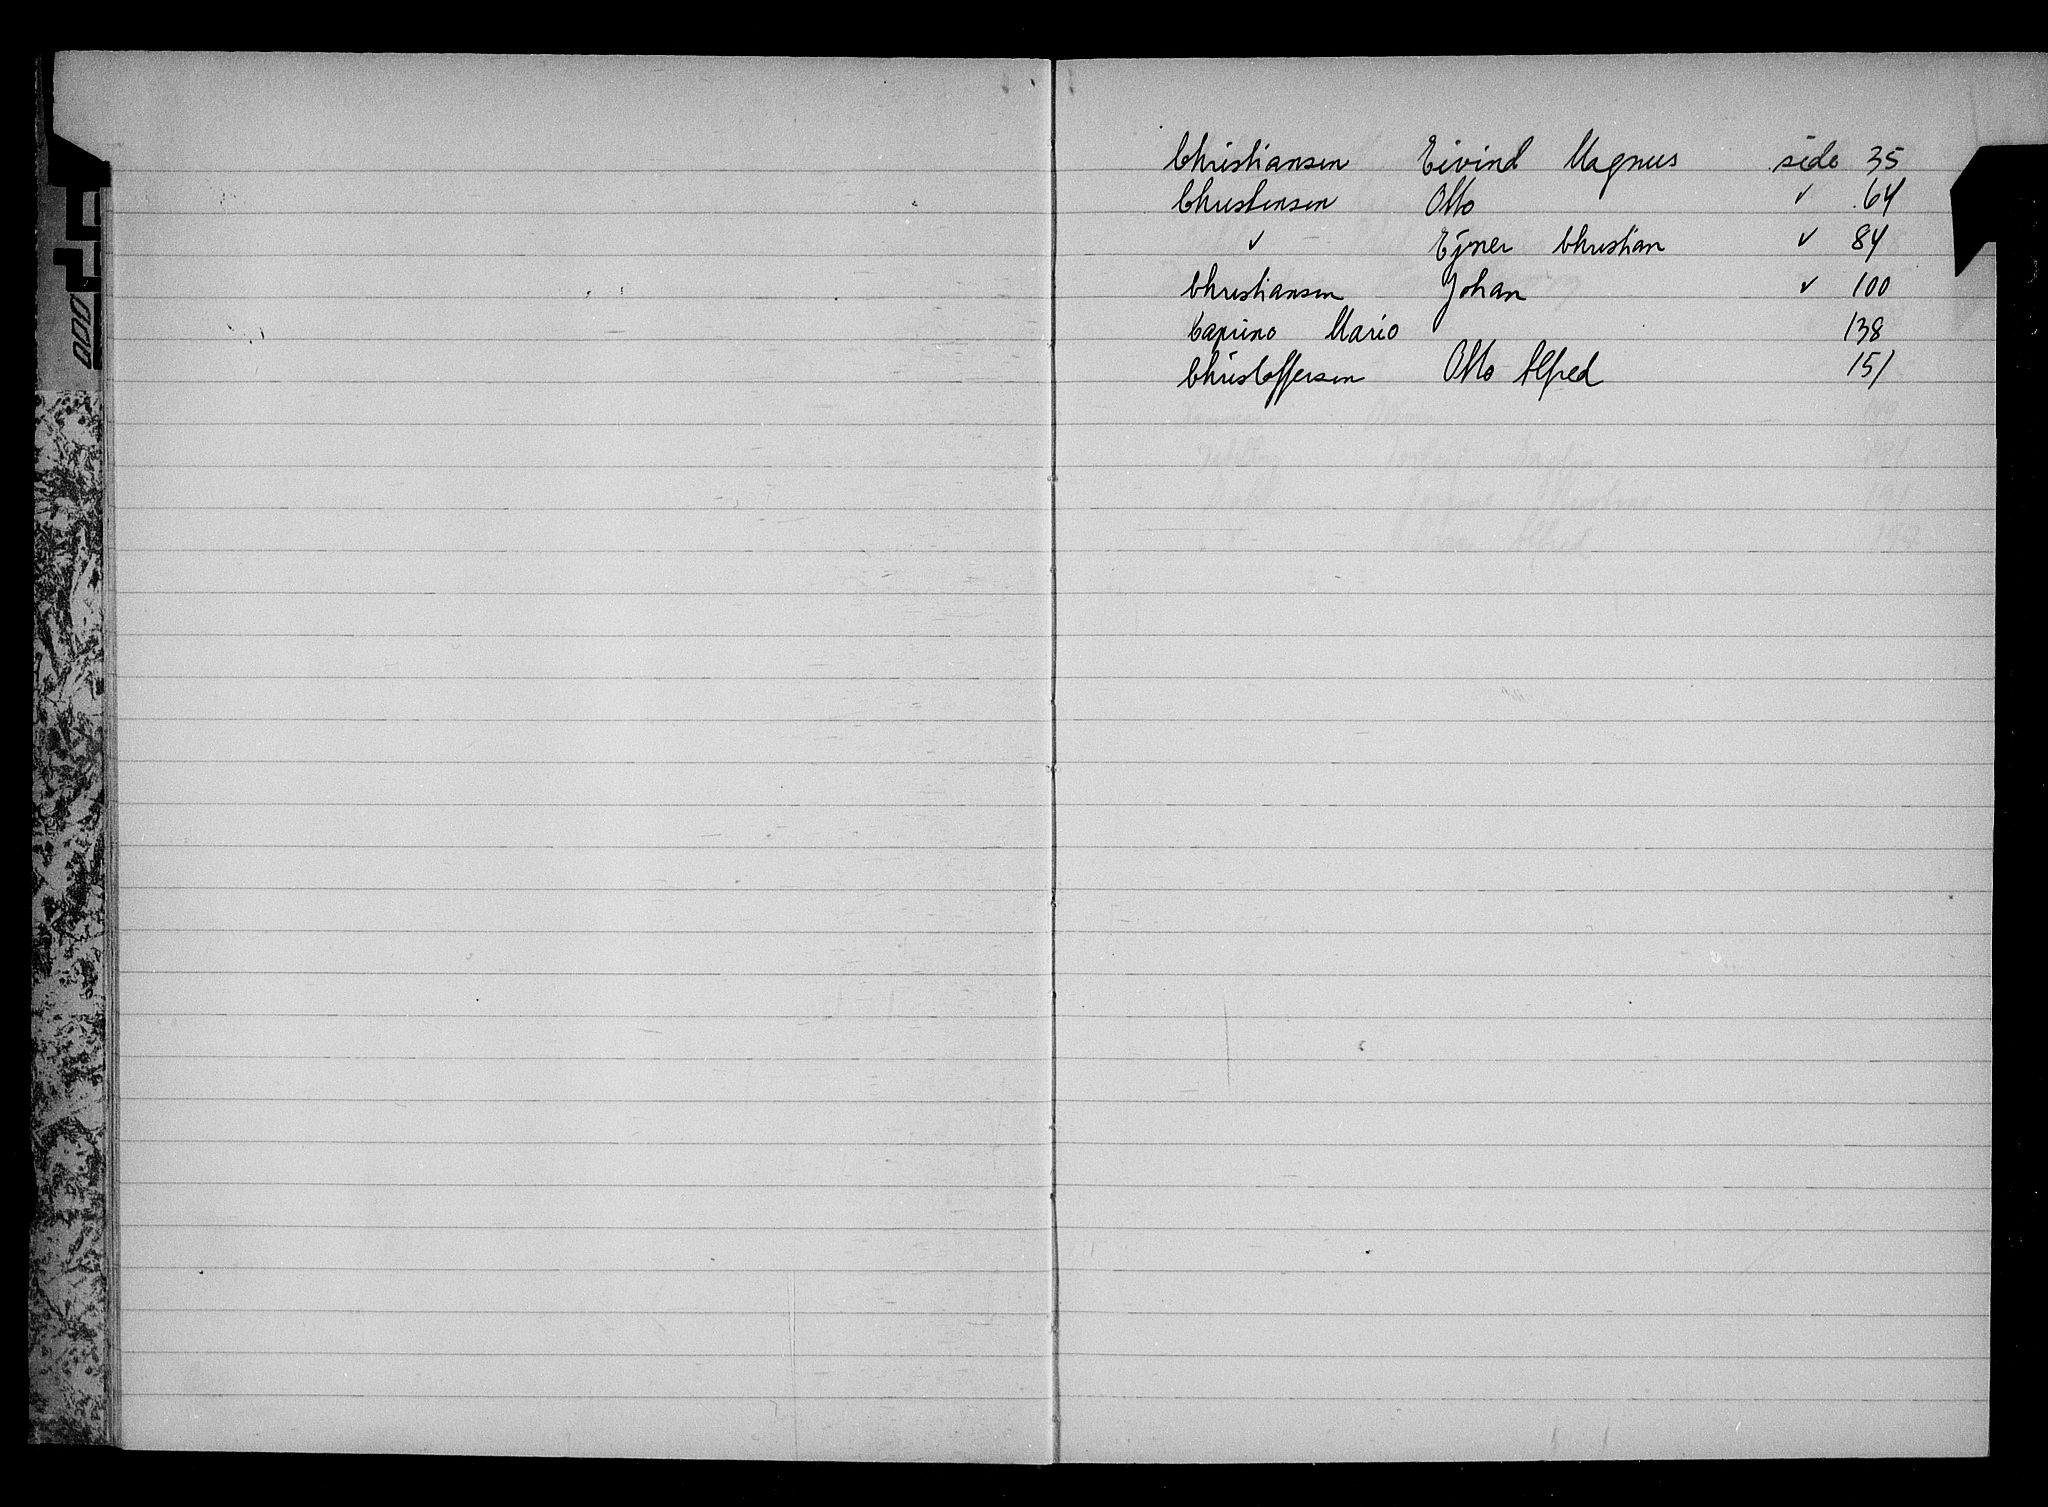 Christiansen Eivind Magnus side 35
Christensen Otto ✓ 64
✓ Ejner Christian ✓ 84
Christiansen Johan ✓ 100
Caprino Mario 138
Christoffersen Otto Alfred 151